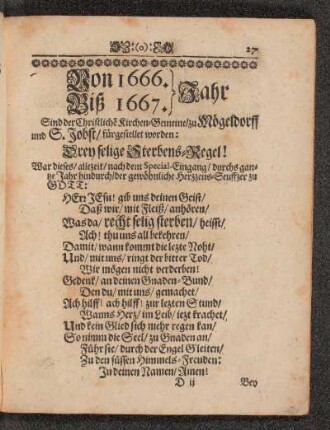 :(o): 27
Von 1666.
Biß 1667. } Jahr
Sind der Christlichē Kirchen-Gemeine/ zu Mögeldorff
und S. Jobst/ fürgestellet worden:
Drey selige Sterbens-Regel!
War dieses/ allezeit/ nach dem Special-Eingang/ durchs gan-
tze Jahr hindurch/ der gewöhnliche Hertzens-Seufftzer zu
GOTT:
HErr JEsu! gib uns deinen Geist/
Daß wir/ mit Fleiß/ anhören/
Was da/ recht selig sterben/ heisst/
Ach! thu uns all bekehren/
Damit/ wann kommt die lezte Noht/
Und/ mit uns/ ringt der bitter Tod/
Wir mögen nicht verderben!
Gedenk/ an deinen Gnaden-Bund/
Den du/ mit uns/ gemachet/
Ach hilff! ach hilff! zur lezten Stund/
Wanns Herz/ im Leib/ iezt krachet/
Und kein Glied sich mehr regen kan/
So nimm die Seel/ zu Gnaden an/
Führ sie/ durch der Engel Gleiten/
Zu den süssen Himmels-Freuden:
In deinen Namen/ Amen!
D ij Bey